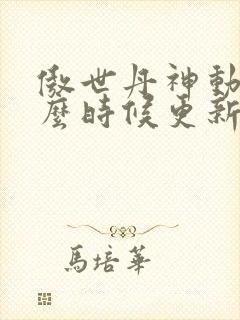 傲世丹神動
麼時候更新
馬培華